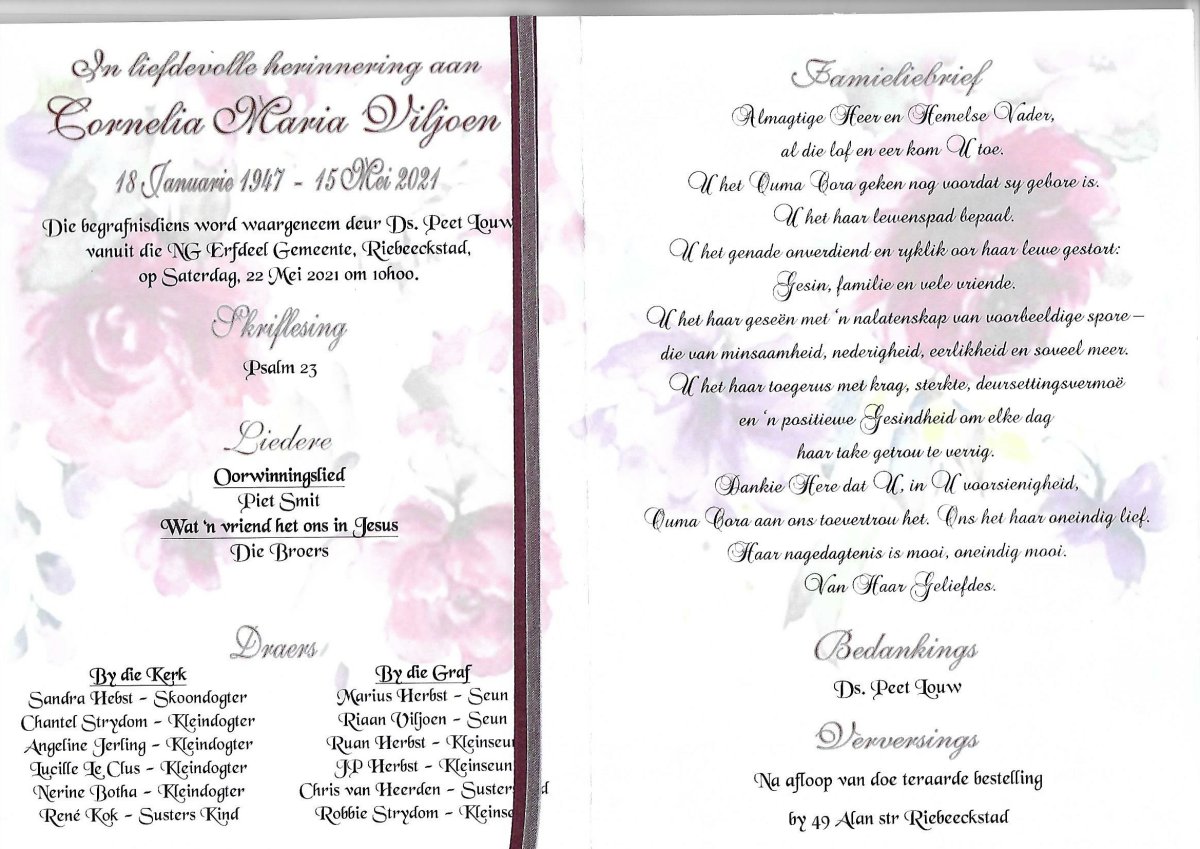 In liefdevolle herinnering aan
Cornelia Maria Viljoen
18 Januarie 1947 - 15 Mei 2021
Die begrafnisdiens word waargeneem deur Ds. Peet Louw
vanuit die NG Erfdeel Gemeente, Riebeeckstad,
op Saterdag, 22 Mei 2021 om 10h00.
Skriflesing
Psalm 23
Liedere
Oorwinningslied
Piet Smit
Wat 'n vriend het ons in Jesus
Die Broers
Draers
By die Kerk
Sandra Hebst - Skoondogter
Chantel Strydom - Kleindogter
Angeline Jerling - Kleindogter
Lucille Le Clus - Kleindogter
Nerine Botha - Kleindogter
René Kok - Susters Kind
By die Graf
Marius Herbst - Seun
Riaan Viljoen - Seun
Ruan Herbst - Kleinseu
JP Herbst - Kleinseun
Chris van Heerden - Susters
Robbie Strydom - Kleins
Famieliebrief
Almagtige Heer en Hemelse Vader,
al die lof en eer kom U toe.
U het Ouma Cora geken nog voordat sy gebore is.
U het haar lewenspad bepaal.
U het genade onverdiend en ryklik oor haar lewe gestort:
Gesin, familie en vele vriende.
U het haar geseën met 'n nalatenskap van voorbeeldige spore–
die van minsaamheid, nederigheid, eerlikheid en soveel meer.
U het haar toegerus met krag, sterkte, deursettingsvermoë
en 'n positiewe Gesindheid om elke dag
haar take getrou te verrig.
Dankie Here dat U, in U voorsienigheid,
Ouma Cora aan ons toevertrou het. Ons het haar oneindig lief.
Haar nagedagtenis is mooi, oneindig mooi.
Van Haar Geliefdes.
Bedankings
Ds. Peet Louw
Verversings
Na afloop van doe teraarde bestelling
by 49 Alan str Riebeeckstad